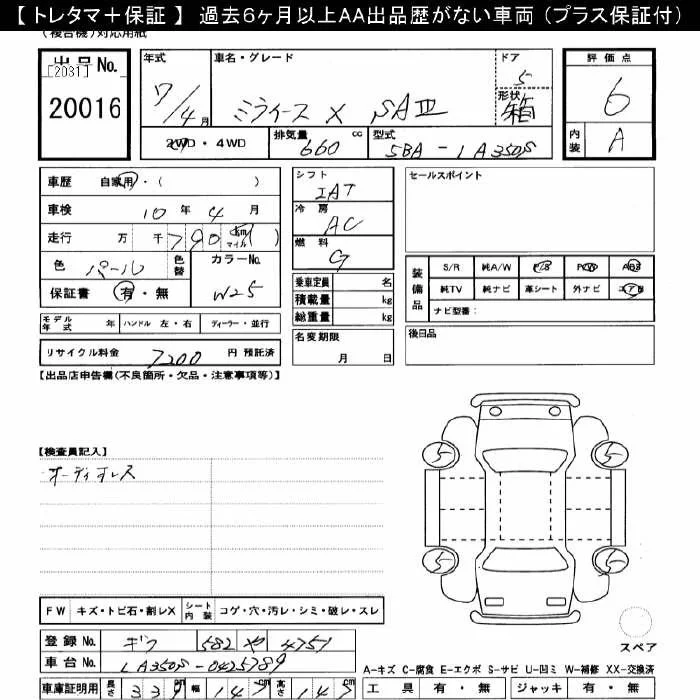 【 トレタマ＋保証 】 過去６ヶ月以上ＡＡ出品歴がない車両（プラス保証付）
(複合機)対応用紙
出品No. [2031] 20016
年式 7/4月
車名・グレード ミライース X SAⅢ
ドア 5
形状 箱
評価点 6
内装 A
2WD・4WD
排気量 660 cc
型式 5BA-LA350S
車歴 自家用・( )
車検 10年 4月
走行 万 千 790 km マイル ( )
色 パール 色替
カラーNo. W25
保証書 有・無
シフト IAT
冷房 AC
燃料 G
乗車定員 名
積載量 kg
総重量 kg
セールスポイント
装備品 S/R 純A/W P/S P/W ABS
純TV 純ナビ 革シート 外ナビ エアB
ナビ型番：
モデル年式 年 ハンドル 左・右 ディーラー・並行
名変期限 月 日
後日品
リサイクル料金 7200 円 預託済
【出品店申告欄(不良箇所・欠品・注意事項等)】
【検査員記入】
オーディオレス
5 5
5 5
FW キズ・トビ石・割レX シート内装 コゲ・穴・汚レ・シミ・破レ・スレ
スペア
登録No. ギフ 582 や 4757
車台No. LA350S-0425789
A-キズ C-腐食 E-エクボ S-サビ U-凹ミ W-補修 XX-交換済
車庫証明用 長さ 339 幅 147 高さ 145
工具 有・無 ジャッキ 有・無